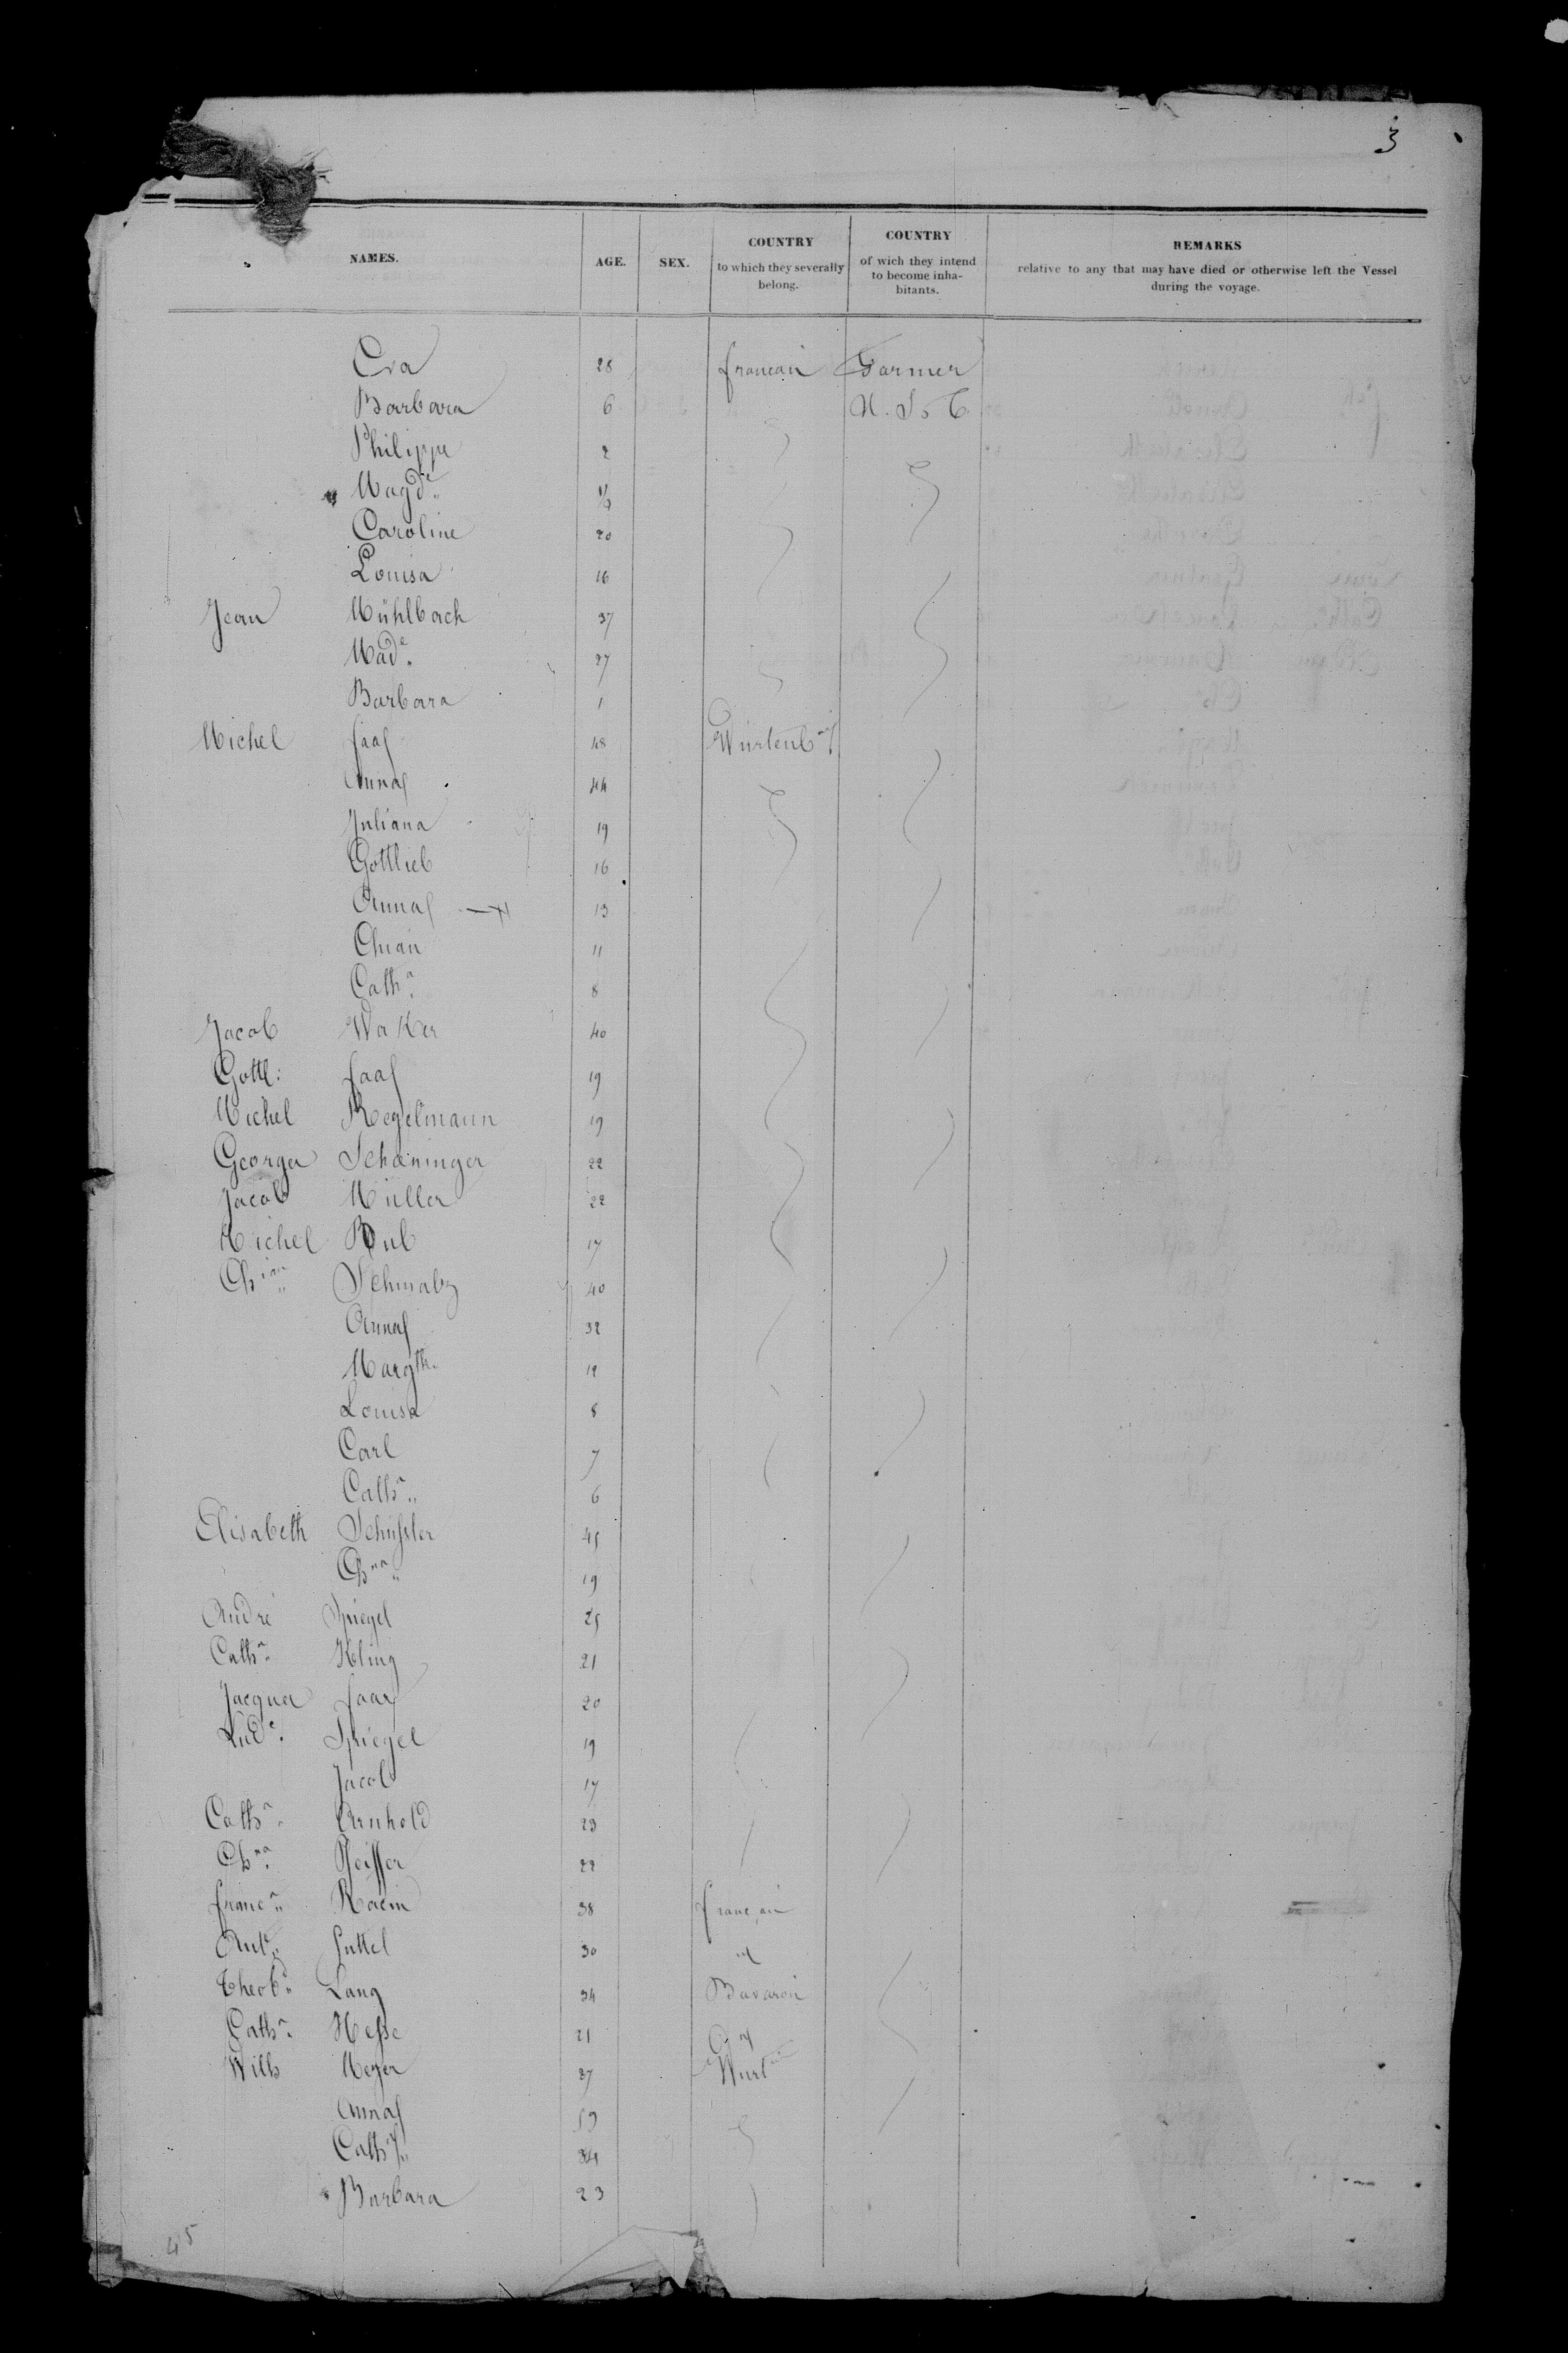 3
NAMES. AGE. SEX. COUNTRY to which they severally belong. COUNTRY of wich they intend to become inhabitants. REMARKS relative to any that may have died or otherwise left the Vessel during the voyage.
Eva 28 francais Farmer
Barbara 6 U. S.
Philippe 2
Magde
Caroline 20
Louisa 16
Jean Mühlbach 37
Made 27
Barbara 1
Michel faas 48
Anna 44
Juliana 19
Gottlieb 16
Anna 13
Chian 11
Cathn 8
Jacob Walker 40
Gottl: faas 19
Michel Kegelmann 19
George Schœninger 22
Jacob Müller 22
Michel Bub 17
Chian Schmalz 40
Anna 32
Margth 12
Louisa 8
Carl 7
Cathn 6
Elisabeth Schüssler 45
Chna 19
André Spiegel 25
Cathn Kling 21
Jacques faas 20
Lude Spiegel 19
Jacob 17
Cathn Arnhold 23
Chna Pfeiffer 22
francs 38 francais
Ant 30
Theobd Lang 34 Bavarois
Cathn Hesse 21
Wilh Meyer 27 Wurt
Anna 59
Cathn 34
Barbara 23
45